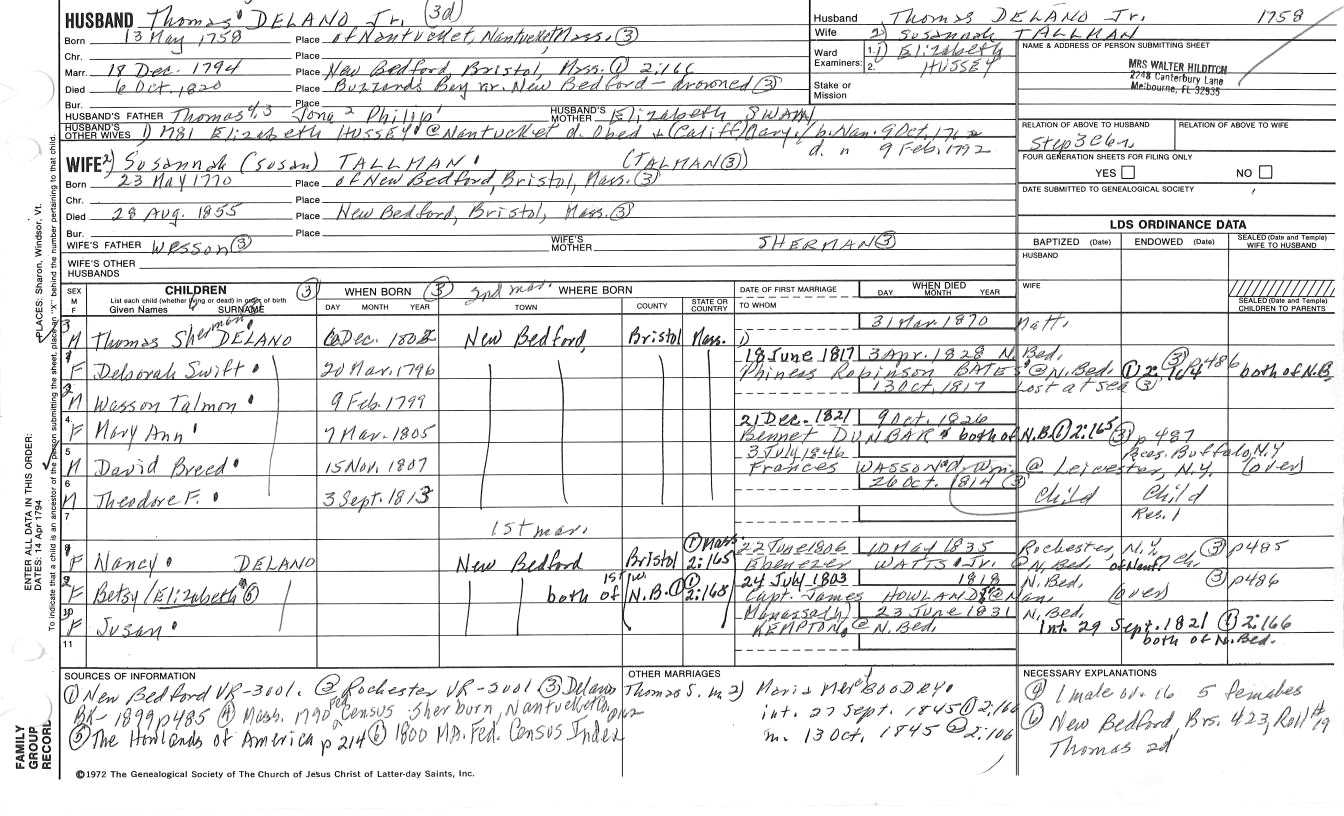 HUSBAND Thomas DELANO Jr. (3d)
Born 13 May 1758 Place of Nantucket, Nantucket Mass. ③
Chr. Place
Marr. 18 Dec. 1794 Place New Bedford, Bristol, Mass. ① 2:166
Died 6 Oct. 1820 Place Buzzards Bay nr. New Bedford - drowned ③
Bur. Place
HUSBAND'S FATHER Thomas 4,3 Jona 2 Philip 1 HUSBAND'S MOTHER Elizabeth SWAIN
HUSBAND'S OTHER WIVES 1) m 81 Elizabeth HUSSEY @ Nantucket d. Obed + (Califf) Mary / b. Nan. 9 Oct. 1762
d. n 9 Feb. 1792
WIFE 2) Susannah (Susan) TALLMAN (TALMAN ③)
Born 23 May 1770 Place of New Bedford, Bristol, Mass. ③
Chr. Place
Died 28 Aug. 1855 Place New Bedford, Bristol, Mass. ③
Bur. Place
WIFE'S FATHER Wesson ③ WIFE'S MOTHER SHERMAN ③
WIFE'S OTHER HUSBANDS
Husband Thomas DELANO Jr. 1758
Wife 2) Susannah TALLMAN
Ward Examiners: 1. 1) Elizabeth
2. HUSSEY
Stake or Mission
NAME & ADDRESS OF PERSON SUBMITTING SHEET
MRS WALTER HILDITCH
2248 Canterbury Lane
Melbourne, FL 32935
RELATION OF ABOVE TO HUSBAND RELATION OF ABOVE TO WIFE
FOUR GENERATION SHEETS FOR FILING ONLY
YES NO
DATE SUBMITTED TO GENEALOGICAL SOCIETY
LDS ORDINANCE DATA
BAPTIZED (Date) ENDOWED (Date) SEALED (Date and Temple) WIFE TO HUSBAND
HUSBAND
WIFE
SEALED (Date and Temple) CHILDREN TO PARENTS
SEX M F CHILDREN ③ WHEN BORN ③ 2nd mar. WHERE BORN DATE OF FIRST MARRIAGE WHEN DIED
List each child (whether living or dead) in order of birth
Given Names SURNAME DAY MONTH YEAR TOWN COUNTY STATE OR COUNTRY TO WHOM DAY MONTH YEAR
3 M Thomas Sherman DELANO 6 Dec. 1802 New Bedford, Bristol Mass. 1) 31 Mar. 1870 Matt.
1 F Deborah Swift 20 Mar. 1796 18 June 1817 3 Apr. 1828 N. Bed.
Phineas Robinson BATES @ N. Bed. ① 2:164 ③ p486 both of N.B.
2 M Wasson Talmon 9 Feb. 1799 13 Oct. 1817 Lost at sea ③
4 F Mary Ann 7 Mar. 1805 21 Dec. 1821 9 Oct. 1826
Bennet DUNBAR both of N.B. ① 2:165 ③ p487
5 M David Breed 15 Nov. 1807 3 July 1846 Res. Buffalo, N.Y.
Frances WASSON @ Leicester, N.Y. (over)
6 M Theodore F. 3 Sept. 1813 26 Oct. 1814 ③ Child Child
Res. 1
7 1st mar.
8 F Nancy DELANO New Bedford Bristol ① Mass. 2:165 22 June 1806 10 May 1835 Rochester, N.Y. ③ p485
Ebenezer WATTS Jr. @ N. Bed.
9 F Betsy/Elizabeth ⑤ both of N.B. ① 2:165 24 July 1803 1818 N. Bed. ③ p486
Capt. James HOWLAND @ Nan. (over)
10 F Susan Manasseh KEMPTON @ N. Bed. 23 June 1831 N. Bed.
Int. 29 Sept. 1821 ① 2:166
both of N. Bed.
11
SOURCES OF INFORMATION
① New Bedford VR-3001. ② Rochester VR-3001 ③ Delano
BK-1899 p485 ④ Mass. 1790 Fed. Census Sherburn, Nantucket Co.
⑤ The Howlands of America p 214 ⑥ 1800 MA. Fed. Census Index
OTHER MARRIAGES
Thomas S. m 2) Maria BOODRY.
int. 27 Sept. 1845 ① 2:166
m. 13 Oct. 1845 ② 2:106
NECESSARY EXPLANATIONS
④ 1 male ov. 16 5 females
⑥ New Bedford, Brs. 423, Roll #19
Thomas 2d
©1972 The Genealogical Society of The Church of Jesus Christ of Latter-day Saints, Inc.
FAMILY GROUP RECORD
ENTER ALL DATA IN THIS ORDER:
DATES: 14 Apr 1794
PLACES: Sharon, Windsor, Vt.
To indicate that a child is an ancestor of the person submitting the sheet, place an "X" behind the number pertaining to that child.